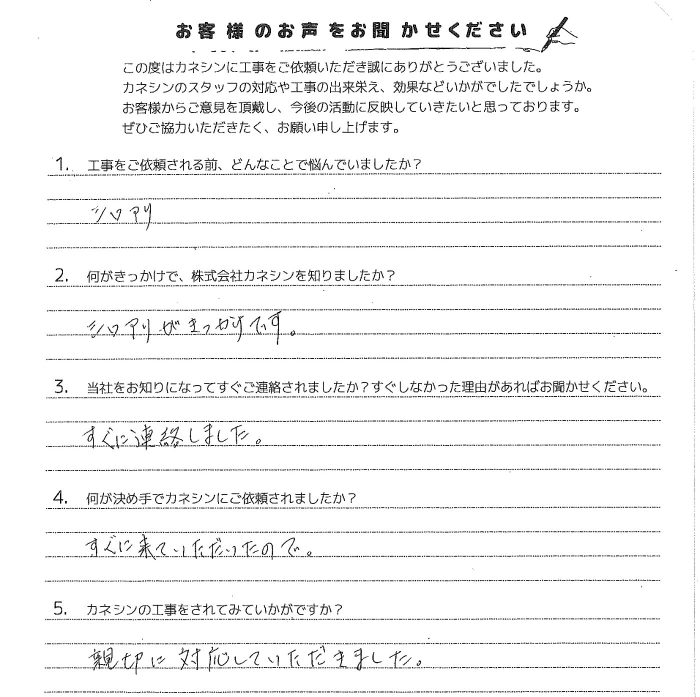 お客様のお声をお聞かせください
この度はカネシンに工事をご依頼いただき誠にありがとうございました。
カネシンのスタッフの対応や工事の出来栄え、効果などいかがでしたでしょうか。
お客様からご意見を頂戴し、今後の活動に反映していきたいと思っております。
ぜひご協力いただきたく、お願い申し上げます。
1. 工事をご依頼される前、どんなことで悩んでいましたか?
シロアリ
2. 何がきっかけで、株式会社カネシンを知りましたか?
シロアリがきっかけです。
3. 当社をお知りになってすぐご連絡されましたか?すぐしなかった理由があればお聞かせください。
すぐに連絡しました。
4. 何が決め手でカネシンにご依頼されましたか?
すぐに来ていただいたので。
5. カネシンの工事をされてみていかがですか?
親切に対応していただきました。